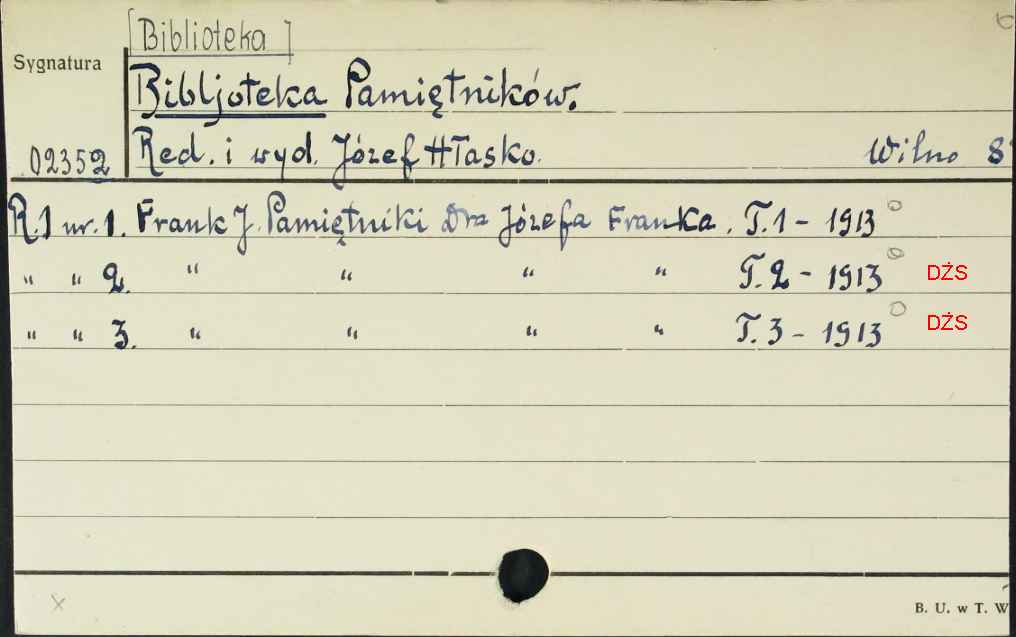 [Biblioteka]
Sygnatura
Bibljoteka Pamiętników.
02352 Red. i wyd. Józef Hłasko. Wilno 8°
R.1 nr. 1. Frank J. Pamiętniki Dra Józefa Franka. T.1 - 1913
" " 2. " " " " T.2 - 1913 DŻS
" " 3. " " " " T.3 - 1913 DŻS
x
B. U. w T. W